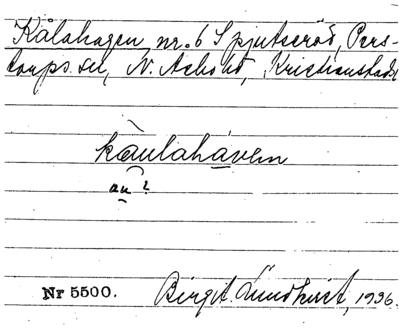 Kålahagen nr. 6 Spjutseröd, Pers-
torps sn, N. Åsbo hd, Kristianstads
kàulahávem
au?
Nr 5500. Birgit Lundkvist, 1936.